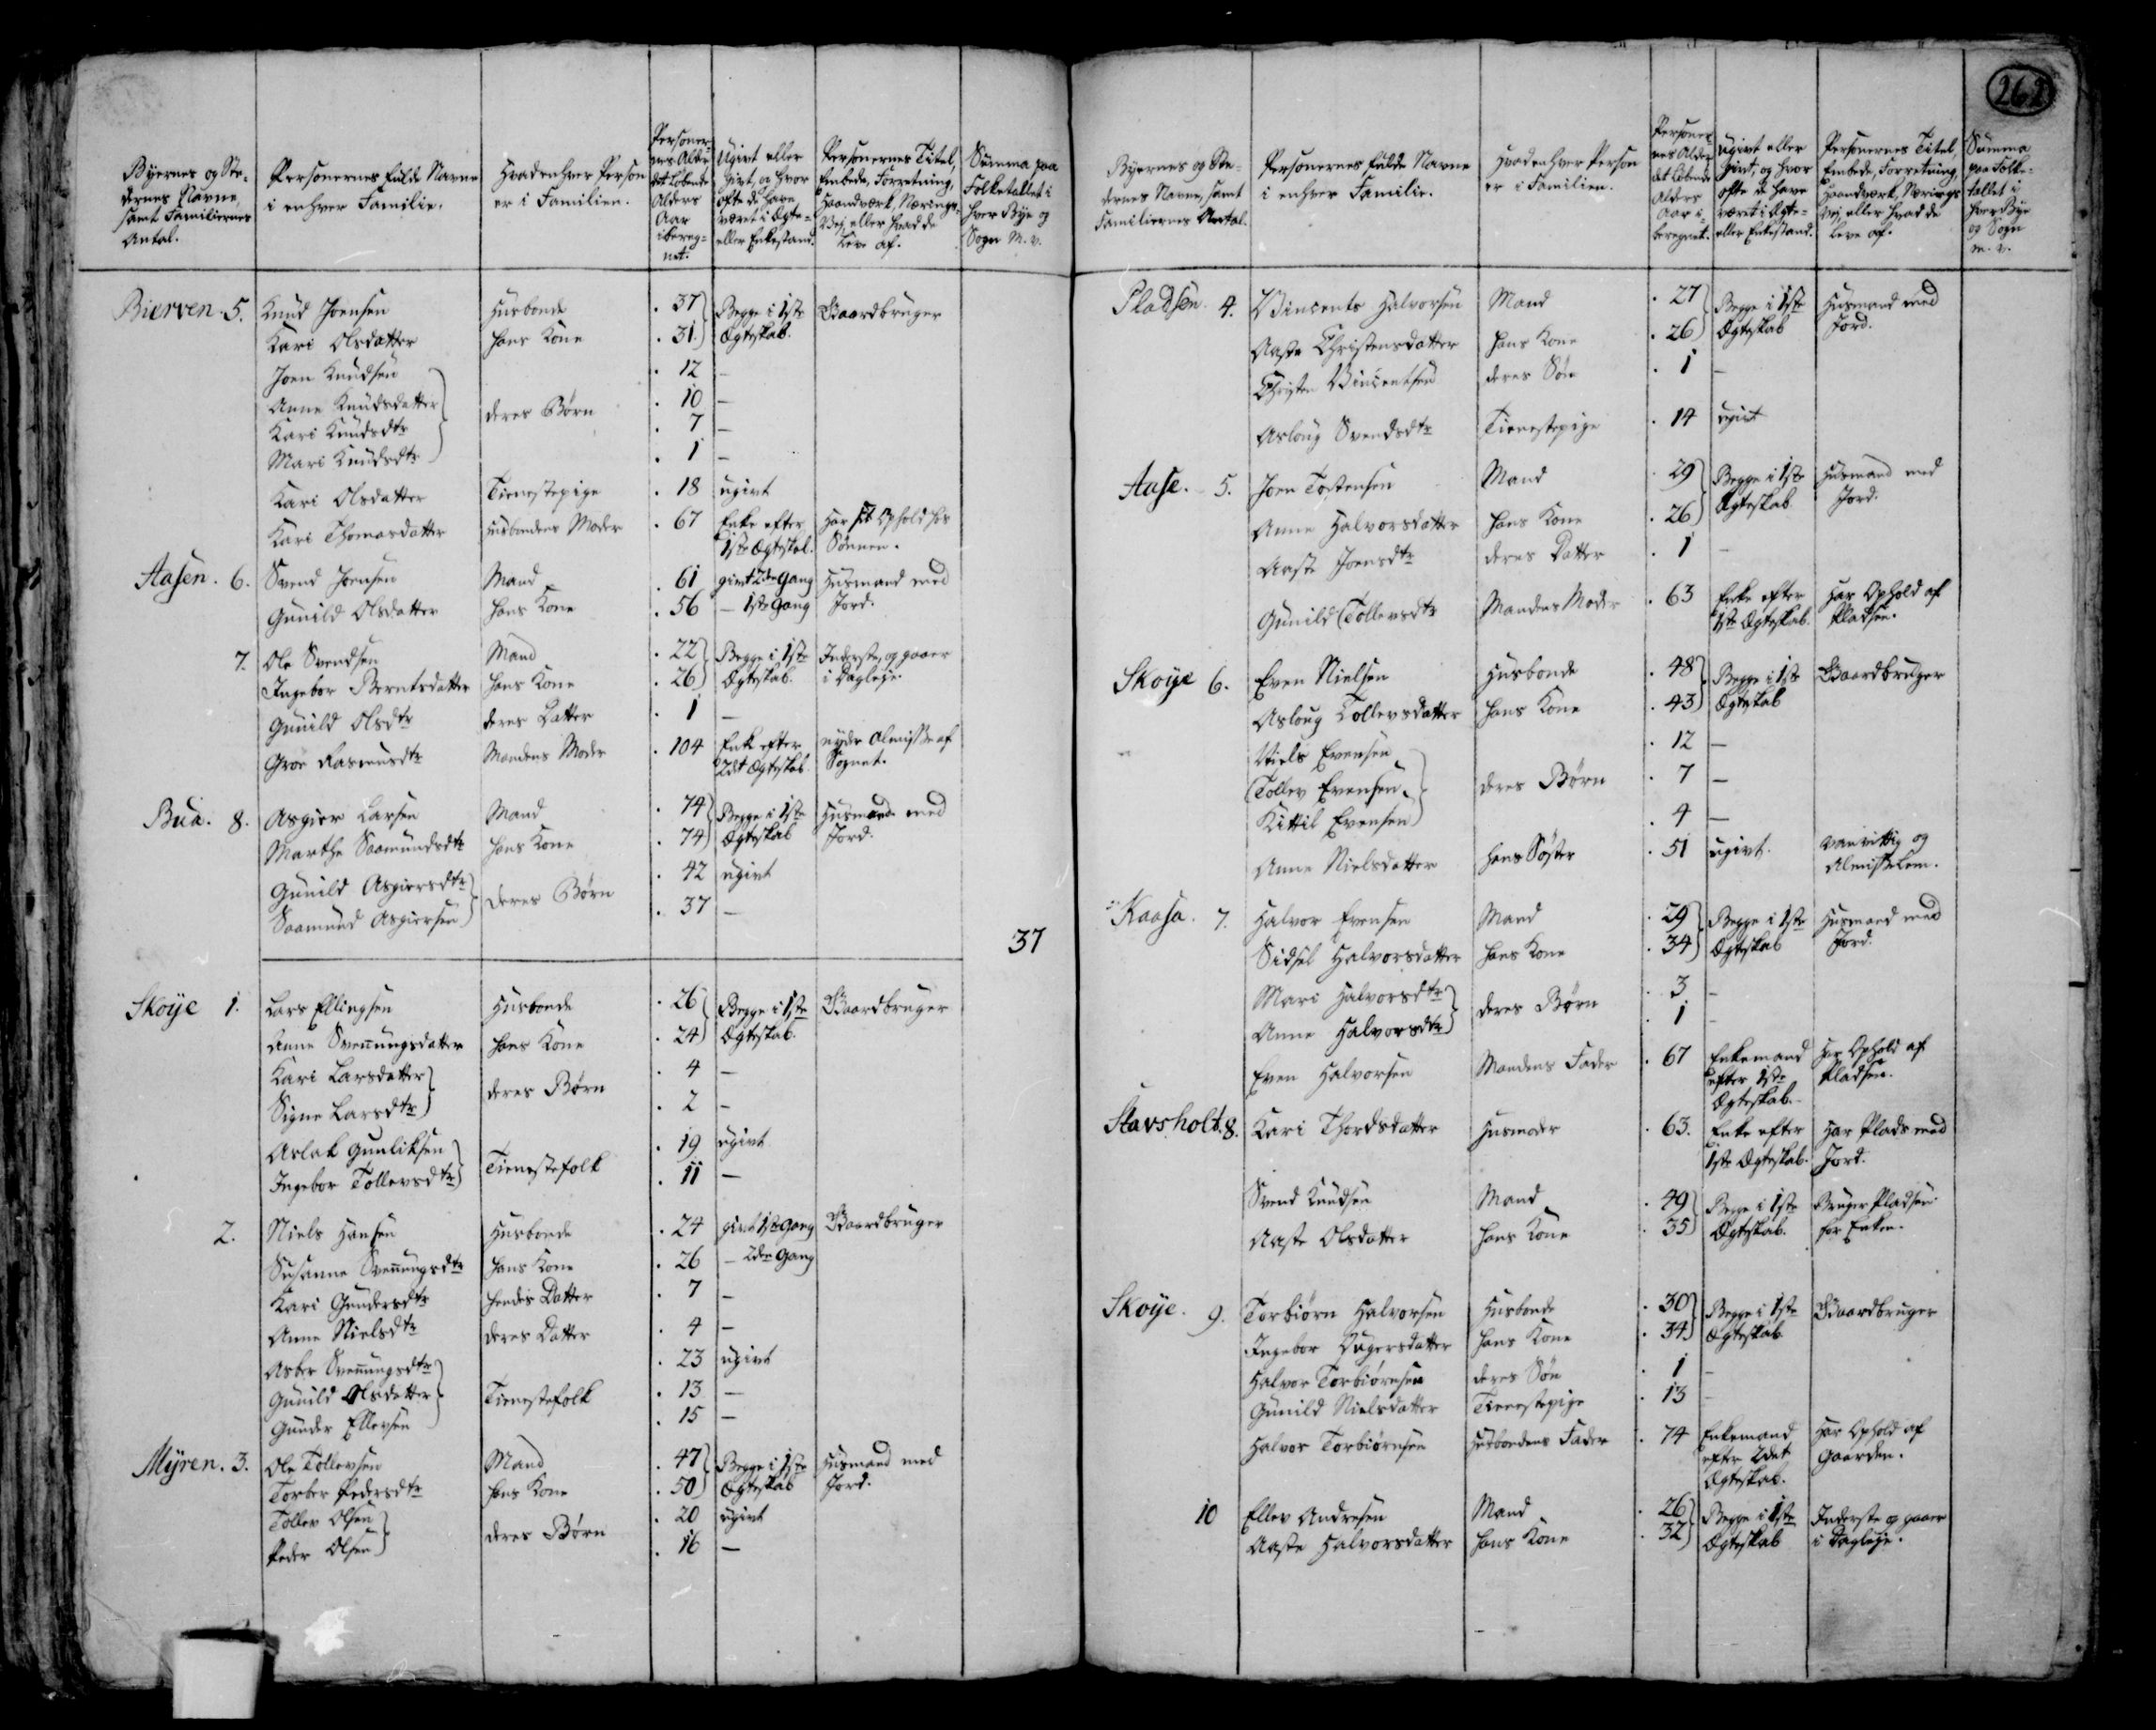 262
Byernes og Ste-
dernes Navne,
samt Familiernes
Antal.
Personernes fulde Navne
i enhver Familie.
Hvad enhver Person
er i Familien.
Personer-
nes Alder
det løbende
Alders
Aar
ibereg-
net.
Ugivt eller
Givt, og hvor
ofte de have
været i Ægte-
eller Enkestand.
Personernes Titel,
Embede, Forretning,
Haandværk, Nærings-
Vej, eller hvad de
Leve af.
Summa paa
Folketallet i
hver Bye og
Sogn m. v.
Bierven 5. Knud Joensen Husbonde 37 Begge i 1ste Gaardbruger
Kari Olsdatter hans Kone 31 Ægteskab.
Joen Knudsen 12 –
Anne Knudsdatter 10 –
Kari Knudsdtr deres Børn 7 –
Mari Knudsdtr 1 –
Kari Olsdatter Tienestepige 18 ugivt
Kari Thomasdatter Husbondens Moder 67 Enke efter Har sit Ophold hos
1ste Ægteskab. Sønnen.
Aasen. 6. Svend Joensen Mand 61 givt 2den Gang Husmand med
Gunild Olsdatter hans Kone 56 – 1ste Gang Jord.
7. Ole Svendsen Mand 22 Begge i 1ste Inderste, og gaaer
Ingebor Berntsdatter hans Kone 26 Ægteskab. i Dagleje.
Gunild Olsdtr deres Datter 1 –
Groe Rasmusdtr Mandens Moder 104 Enke efter nyder Almisse af
2det Ægteskab. Sognet.
Bua. 8. Asgier Larsen Mand 74 Begge i 1ste Husmand med
Marthe Saamundsdtr hans Kone 74 Ægteskab Jord.
Gunild Asgiersdtr deres Børn 42 ugivt
Saamund Asgiersen 37 –
37
Skoÿe 1. Lars Ellingsen Husbonde 26 Begge i 1ste Gaardbruger
Anne Svenungsdatter hans Kone 24 Ægteskab.
Kari Larsdatter deres Børn 4 –
Signe Larsdtr 2 –
Aslak Gunliksen Tienestefolk 19 ugivt
Ingebor Tollevsdtr 11 –
2. Niels Hansen Husbonde 24 givt 1ste Gang Gaardbruger
Susanne Svenungsdtr hans Kone 26 – 2den Gang
Kari Gundersdtr hendes Datter 7 –
Anne Nielsdtr deres Datter 4 –
Asber Svenungsdtr 23 ugivt
Gunild Olsdatter Tienestefolk 13 –
Gunder Ellevsen 15 –
Mÿren. 3. Ole Tollevsen Mand 47 Begge i 1ste Husmand med
Torber Pedersdtr hans Kone 50 Ægteskab Jord.
Tollev Olsen deres Børn 20 ugivt
Peder Olsen 16 –
Byernes og Ste-
dernes Navne, samt
Familiernes Antal.
Personernes fulde Navne
i enhver Familie.
Hvad enhver Person
er i Familien.
Personer-
nes Alder
det løbende
Alders
Aar i-
beregnet.
Ugivt eller
Givt, og hvor
ofte de have
været i Ægte-
eller Enkestand.
Personernes Titel,
Embede, Forretning,
Haandværk, Nærings
Vej, eller hvad de
Leve af.
Summa
paa Folke-
tallet i
hver Bye
og Sogn
m. v.
Pladsen. 4. Vincents Halvorsen Mand 27 Begge i 1ste Husmand med
Aaste Christensdatter hans Kone 26 Ægteskab Jord.
Christen Vincentsen deres Søn 1 –
Asloug Svendsdtr Tienestepige 14 ugivt
Aase. 5. Joen Tostensen Mand 29 Begge i 1ste Husmand med
Anne Halvorsdatter hans Kone 26 Ægteskab Jord.
Aaste Joensdtr deres Datter 1 –
Gunild Tollevsdtr Mandens Moder 63 Enke efter Har Ophold af
1ste Ægteskab. Pladsen.
Skoÿe 6. Even Nielsen Husbonde 48 Begge i 1ste Gaardbruger
Asloug Tollevsdatter hans Kone 43 Ægteskab
Niels Evensen 12 –
Tollev Evensen deres Børn 7 –
Kittil Evensen 4 –
Anne Nielsdatter hans Søster 51 ugivt. vanvittig og
Almisselem.
Kaasa. 7. Halvor Evensen Mand 29 Begge i 1ste Husmand med
Sidsel Halvorsdatter hans Kone 34 Ægteskab Jord.
Mari Halvorsdtr deres Børn 3 –
Anne Halvorsdtr 1 –
Even Halvorsen Mandens Fader 67 Enkemand Har Ophold af
efter 1ste Pladsen.
Ægteskab.
Stavsholt. 8. Kari Thordsdatter Husmoder 63. Enke efter Har Plads med
1ste Ægteskab. Jord.
Svend Knudsen Mand 49 Begge i 1ste Bruger Pladsen
Aaste Olsdatter hans Kone 35 Ægteskab. for Enken.
Skoÿe. 9. Torbiørn Halvorsen Husbonde 30 Begge i 1ste Gaardbruger
Ingebor Dygersdatter hans Kone 34 Ægteskab
Halvor Torbiørnsen deres Søn 1 –
Gunild Nielsdatter Tienestepige 13 –
Halvor Torbiørnsen Husbondens Fader 74 Enkemand Har Ophold af
efter 2det Gaarden.
Ægteskab.
10 Ellev Andresen Mand 26 Begge i 1ste Inderste og gaaer
Aaste Halvorsdatter hans Kone 32 Ægteskab i Dagleje.